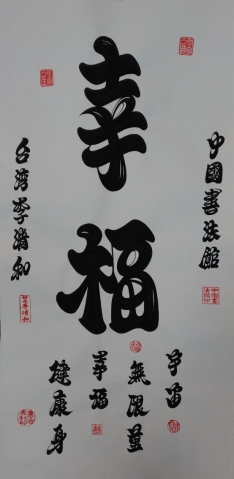 幸福
中國書法館
宇宙
無限量
幸福
健康身
台湾李清和